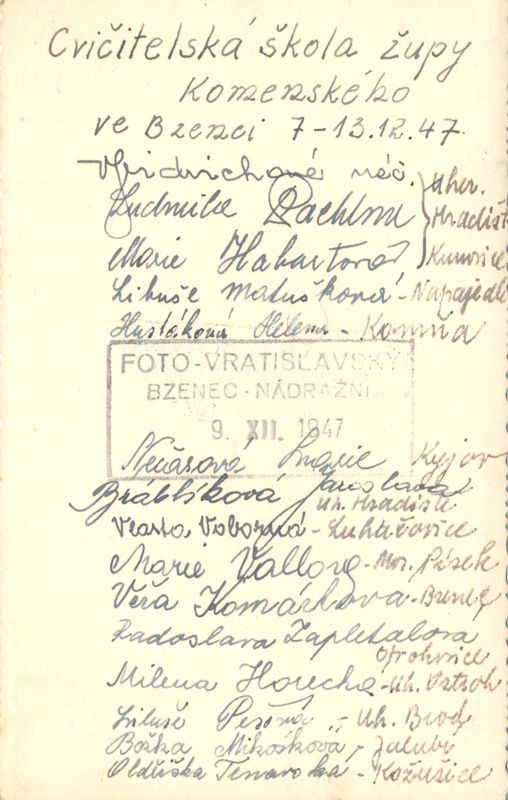 Cvičitelská škola župy
Komenského
ve Bzenci 7-13.12.47.
Uher.
Ludmila Hradiště
Marie Habartová Kunovice
Libuše Matušková - Napajedla
Hustáková Helena - Komňa
FOTO-VRATISLAVSKÝ
BZENEC-NÁDRAŽNÍ
9. XII. 1947
Nečasová Marie Kyjov
Bráblíková Jaroslava
Uh. Hradiště
Vlasta Voborná - Luhačovice
Marie - Mor. Písek
Věra Komárkova - Bzenec
Radoslava Zapletalova
Milena Horecka - Uh. Ostroh
Libuše Pešina - Uh. Brod
Božka Mikošková - Jalubí
Oldřiška - Kožušice